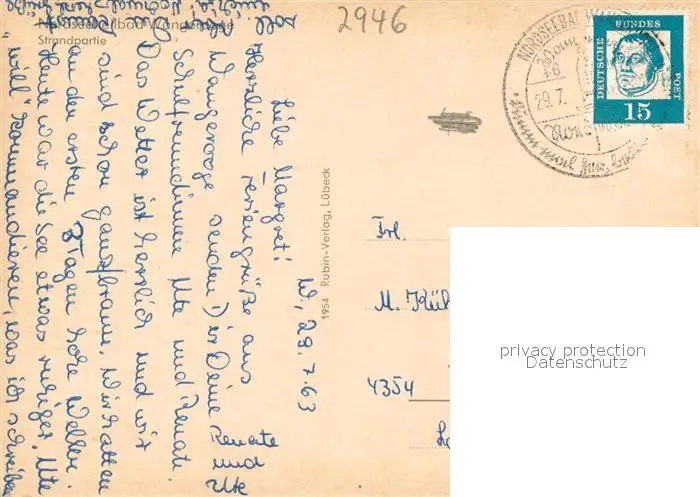 2946
Nordseebad Wangerooge
Strandpartie
W., 29.7.63
Liebe Margret!
Herzliche Feriengrüße aus
Wangerooge senden Dir Deine
Schulfreundinnen Ute und Renate.
Das Wetter ist herrlich und wir
sind schon ganz braun. Wir hatten
an den ersten Tagen hohe Wellen.
Heute war die See etwas ruhiger. Ute
will kommandieren, was ich schreiben
soll
Renate
und
Ute
1954 Rubin-Verlag, Lübeck
NORDSEEBAD WANGE
29.7.
DEUTSCHE
BUNDES
POST
15
Frl.
M. Küh
4354
privacy protection
Datenschutz